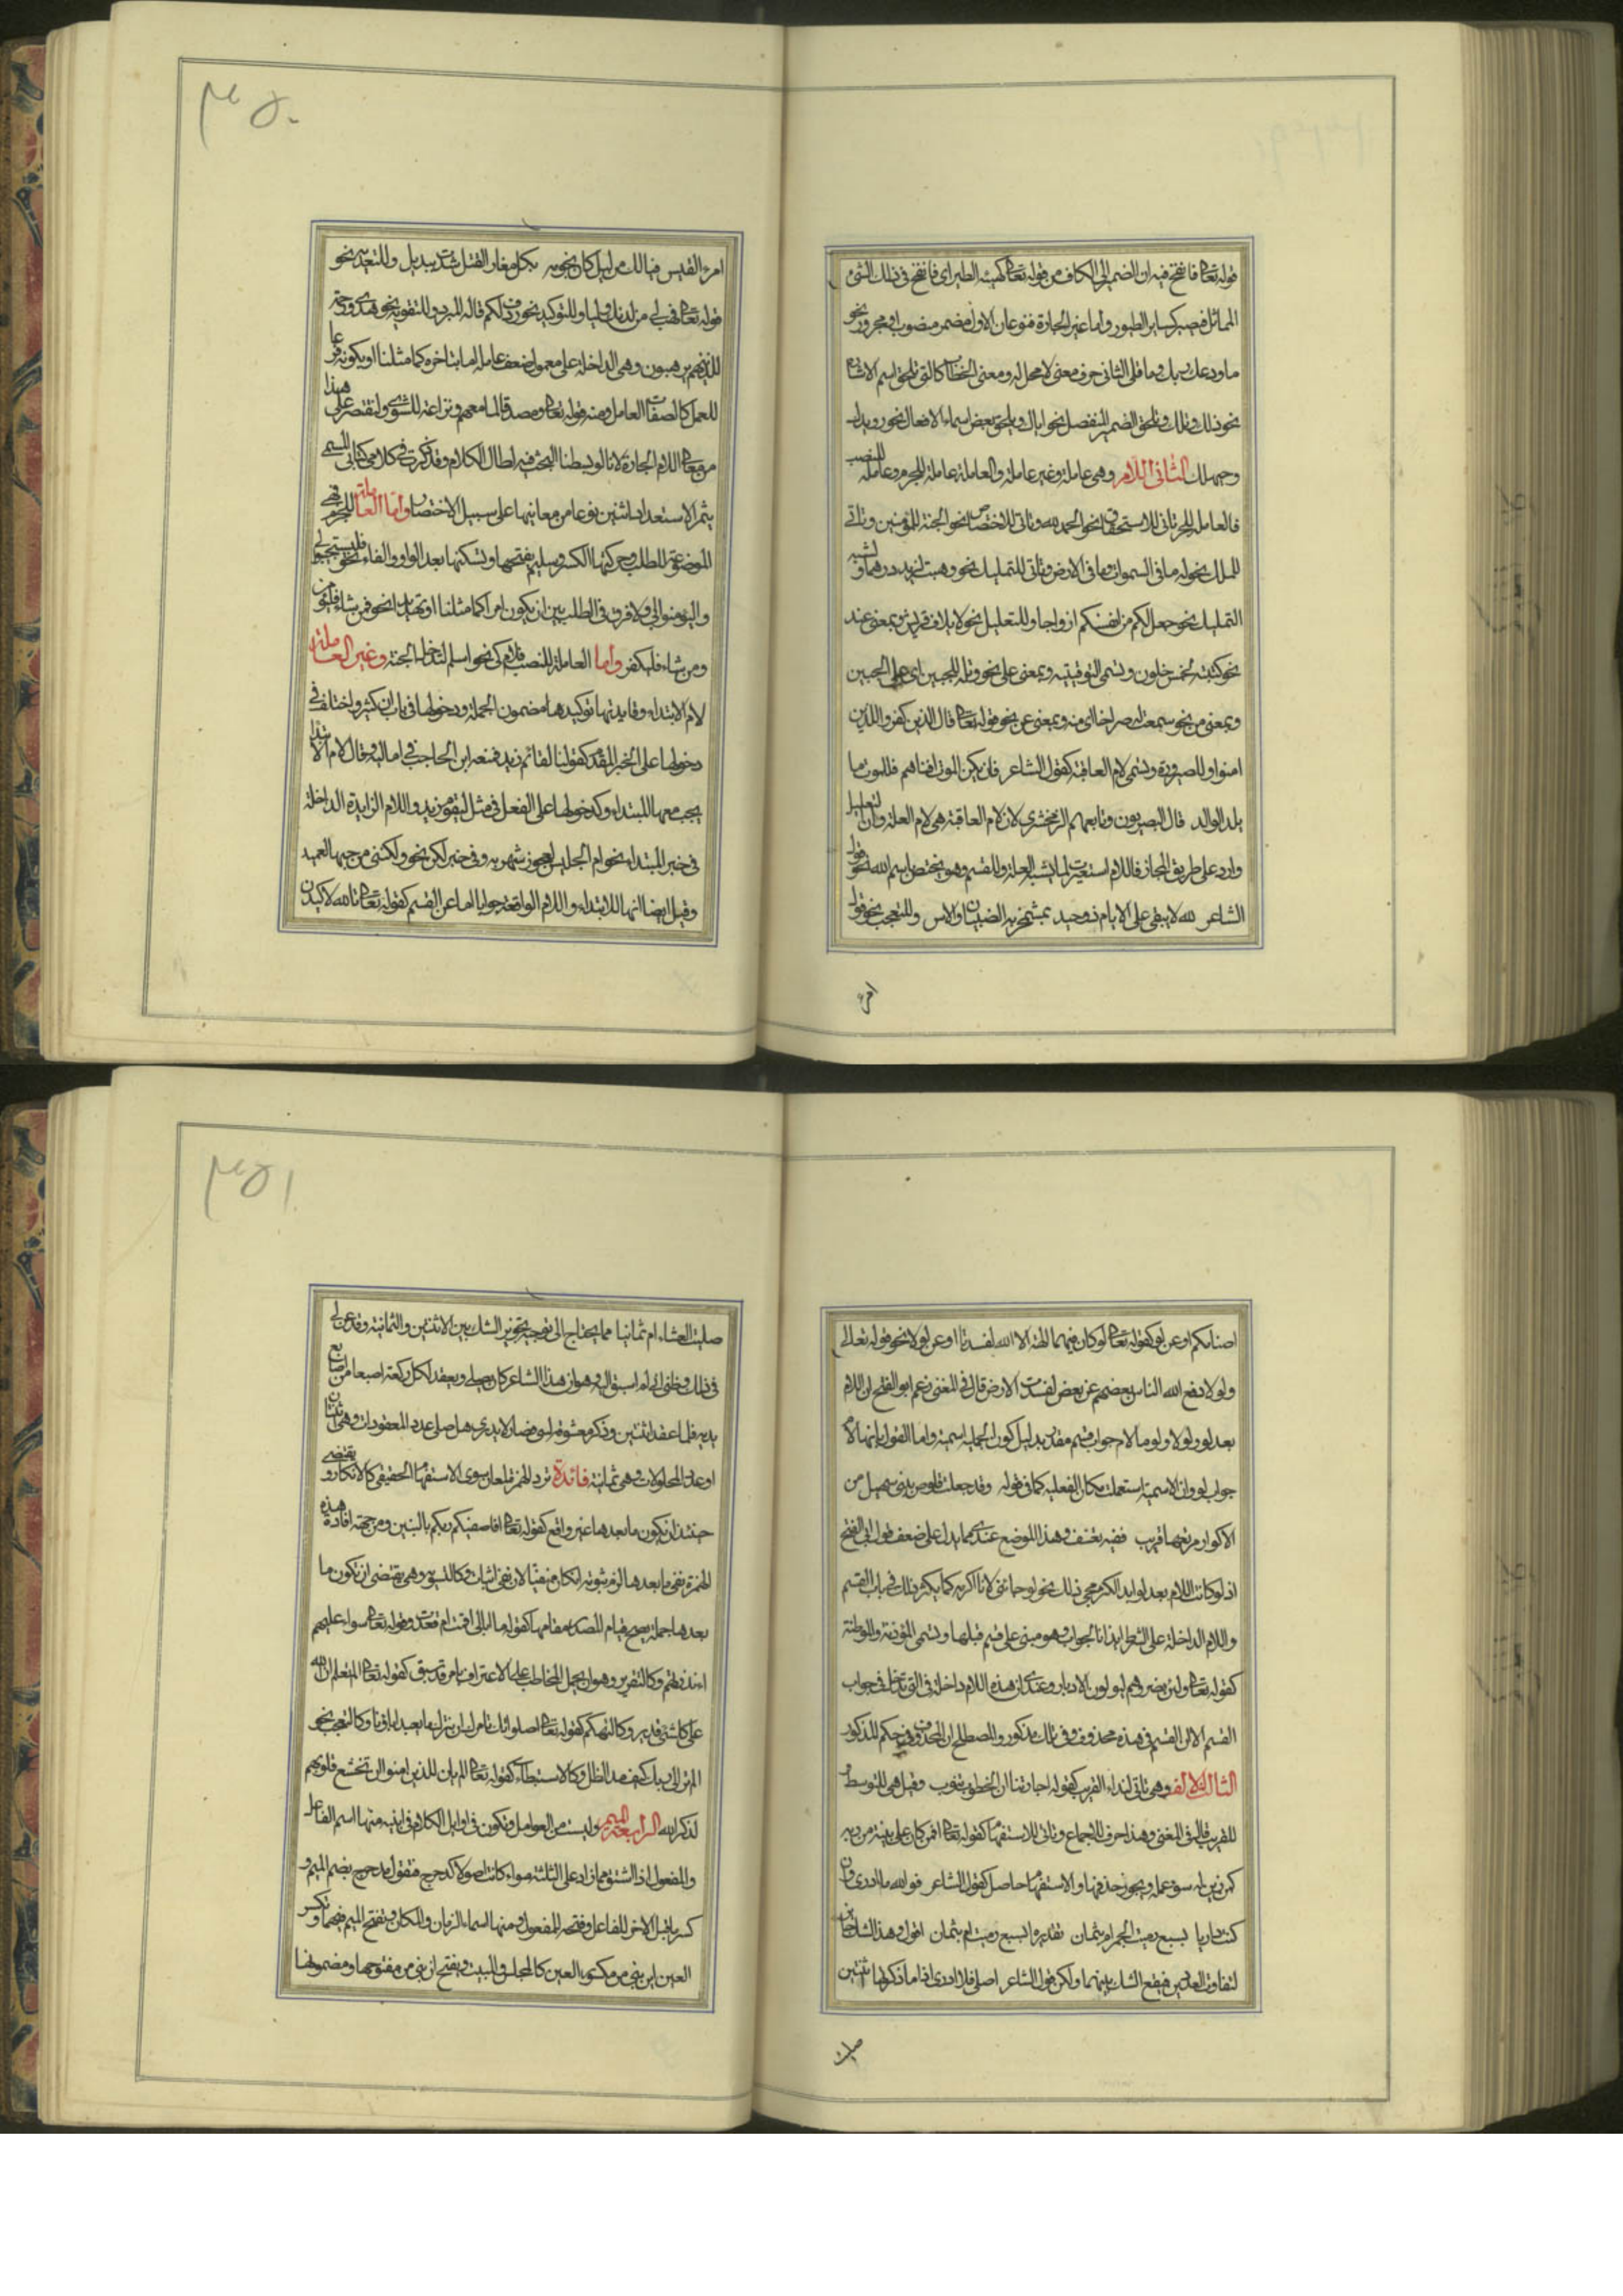 قوله تعالى فانفخ فيه ان الضمير للكاف من قوله تعالى كهيئة الطير اى فانفخ فى ذلك الشئ
المماثل فيصير كساير الطيور واما غير الجارة فنوعان الاول مضمر منصوب او مجرور نحو
ما ودعك ربك وما قلى الثانى حرف معنى لا محل له ومعنى الخطاب كالتى تلحق اسم الاشارة
نحو ذلك وتلك وتلحق الضمير المنفصل نحو اياك ويلحق بعض اسماء الافعال نحو رويدك
وحيهلك الثانى اللام وهى عاملة وغير عاملة والعاملة عاملة للجر وعاملة للنصب
فالعاملة للجر تاتى للاستحقاق نحو الحمد لله وتاتى للاختصاص نحو الجنة للمؤمنين وتاتى
للملك نحو له ما فى السموات وما فى الارض وتاتى للتمليك نحو وهبت لزيد درهما ولشبه
التمليك نحو جعل لكم من انفسكم ازواجا وللتعليل نحو لايلاف قريش وبمعنى عند
نحو كتبته لخمس خلون وتسمى التوقيتيه وبمعنى على نحو وتله للجبين اى على الجبين
وبمعنى من نحو سمعت له صراخا اى منه وبمعنى عن نحو قوله تعالى قال الذين كفروا للذين
امنوا وللصيرورة وتسمى لام العاقبة كقول الشاعر فان يكن الموت افناهم فللموت ما
يلد الوالد قال البصريون وتابعهم الزمخشرى لان لام العاقبة هى لام العلة وان التعليل
وارد على طريق المجاز فاللام استعيرت لما يشبه العلة وللقسم وهو يختص باسم الله نحو قول
الشاعر لله لا يبقى على الايام ذو حيد بمشمخر به الضيان والاس وللتعجب نحو قول
امرؤ
٣٥٠
امرء القيس فيا لك من ليل كان نجومه بكل مغار الفتل شدت بيذبل وللتعدية نحو
قوله تعالى فهب لى من لدنك وليا وللتوكيد نحو ردف لكم قاله المبرد وللتقوية نحو هدى ورحمة
للذين هم لربهم يرهبون وهى الداخلة على معمول ضعف عامله اما بتاخره كما مثلنا او بكونه فرعا
للعمل كالصفات العامل ومنه قوله تعالى ومصدقا لما معهم ونزاعة للشوى ولنقتصر على هذا
من معانى اللام الجارة لانا لو بسطنا البحث فيه لطال الكلام وقد ذكرت فى كلامى كتابى المسمى
بثمر الاستعداد اثنين نوعا من معانيها على سبيل الاختصار واما العاملة للجزم فهى
الموضوعة للطلب وحركتها الكسر وسليم بفتحها وتسكنها بعد الواو والفاء نحو فليستجيبوا لى
وليؤمنوا بى ولا فرق فى الطلب بين ان يكون امرا كما مثلنا او تهديدا نحو فمن شاء فليؤمن
ومن شاء فليكفر واما العاملة للنصب فلام كى نحو اسلم لتدخل الجنة وغير العاملة
لام الابتداء وفايدتها توكيدها مضمون الجملة ودخولها فى باب ان كثير واختلف فى
دخولها على الخبر المقدم كقولنا لقائم زيد فمنعه ابن الحاجب فى اماليه وقال لام الابتداء
يجب معها المبتداء وكدخولها على الفعل فى مثل ليقوم زيد واللام الزايدة الداخلة
فى خبر المبتداء نحو ام الحليس لعجوز شهربه وفى خبر لكن نحو ولكننى من حبها لعميد
وقيل ايضا انها للابتداء واللام الواقعة جوابا اما عن القسم كقوله تعالى تالله لاكيدن
اصنامكم او عن لو كقوله تعالى لو كان فيهما الهة الا الله لفسدتا او عن لولا نحو قوله تعالى
ولولا دفع الله الناس بعضهم عن بعض لفسدت الارض قال فى المغنى زعم ابو الفتح ان اللام
بعد لو ولولا ولوما لام جواب قسم مقدر بدليل كون الجملة اسمية واما القول بانها لام
جواب لو وان الاسمية استعملت مكان الفعلية كما فى قوله وقد جعلت قلوص بنى سهيل من
الاكوار مرتعها قريب ففيه تعسف وهذا الموضع عندى مما يدل على ضعف قول ابى الفتح
اذ لو كانت اللام بعد لو ابدا لكثر مجى ذلك نحو لو جاءنى لانا اكرمه كما يكثر ذلك فى باب القسم
واللام الداخلة على الشرط ايذانا بجواب وهو مبنى على قسم قبلها وتسمى المؤذنة والموطئة
كقوله تعالى ولئن نصروهم ليولون الادبار وعندى ان هذه اللام داخلة فى التى تدخل فى جواب
القسم الا ان القسم فى هذه محذوف وفى تلك مذكور والمصطلح ان المحذوف فى حكم المذكور
الثالث الالف وهى تاتى لنداء القريب كقوله اجارتنا ان الخطوب تنوب وقيل هى للتوسط
للقريب قال فى المغنى وهذا خرق للاجماع وتاتى للاستفهام كقوله تعالى افمن كان على بينة من ربه
كمن زين له سوء عمله ويجوز حذفها والاستفهام حاصل كقول الشاعر فوالله ما ادرى وان
كنت داريا بسبع رميت الجمر ام بثمان تقديره ابسبع رميت ام بثمان اقول وهذا الشك جائز
لتفاوت العددين فيقع الشك بينهما ولكن قول الشاعر اصلى فلا ادرى اذا ما ذكرتها اثنتين
صليت
٣٥١
صليت العشاء ام ثمانيا مما يحتاج الى توجيه تجويز الشك بين الاثنتين والثمانية وقد عن لى
فى ذلك وظنى انى لم اسبق اليه وهو ان هذا الشاعر كان يصلى ويعقد لكل ركعة اصبعا من اصابع
يديه فلما عقد اثنتين وذكر معشوقه لهى فصار لا يدرى هل صلى عدد المعقودات وهى ثنتان
او عدد المحلولات وهى ثمانية فائدة ترد الهمزة لمعان سوى الاستفهام الحقيقى كالانكار ويقتضى
حينئذ ان يكون ما بعدها غير واقع كقوله تعالى افاصفيكم ربكم بالبنين ومن جهة افادة هذه
الهمزة نفى ما بعدها لزم ثبوته ان كان منفيا لان نفى النفى اثبات وكالتسوية وهى يقتضى ان تكون ما
بعدها جملة يصح قيام المصدر مقامها كقوله ما ابالى اقمت ام قعدت وقوله تعالى سواء عليهم
ءانذرتهم وكالتقرير وهو ان يحمل المخاطب على الاعتراف بامر قد سبق كقوله تعالى الم تعلم ان الله
على كل شئ قدير وكالتهكم كقوله تعالى اصلواتك تامرك ان نترك ما يعبد اباؤنا وكالتعجب نحو
الم تر الى ربك كيف مد الظل وكالاستبطاء كقوله تعالى الم يان للذين امنوا ان تخشع قلوبهم
لذكر الله الرابعة الميم وليست من العوامل وتكون فى اوايل الكلام فى ابنية منها اسم الفاعل
والمفعول اذا اشتق مما زاد على الثلثة سواء كانت اصولا كدحرج فتقول مدحرج بضم الميم و
كسر ما قبل الاخر للفاعل وفتحه للمفعول ومنها اسماء الزمان والمكان وتفتح الميم فيهما وتكسر
العين ان بنى من مكسور العين كالمجلس والمبيت ويفتح ان بنى من مفتوحها ومضمومها